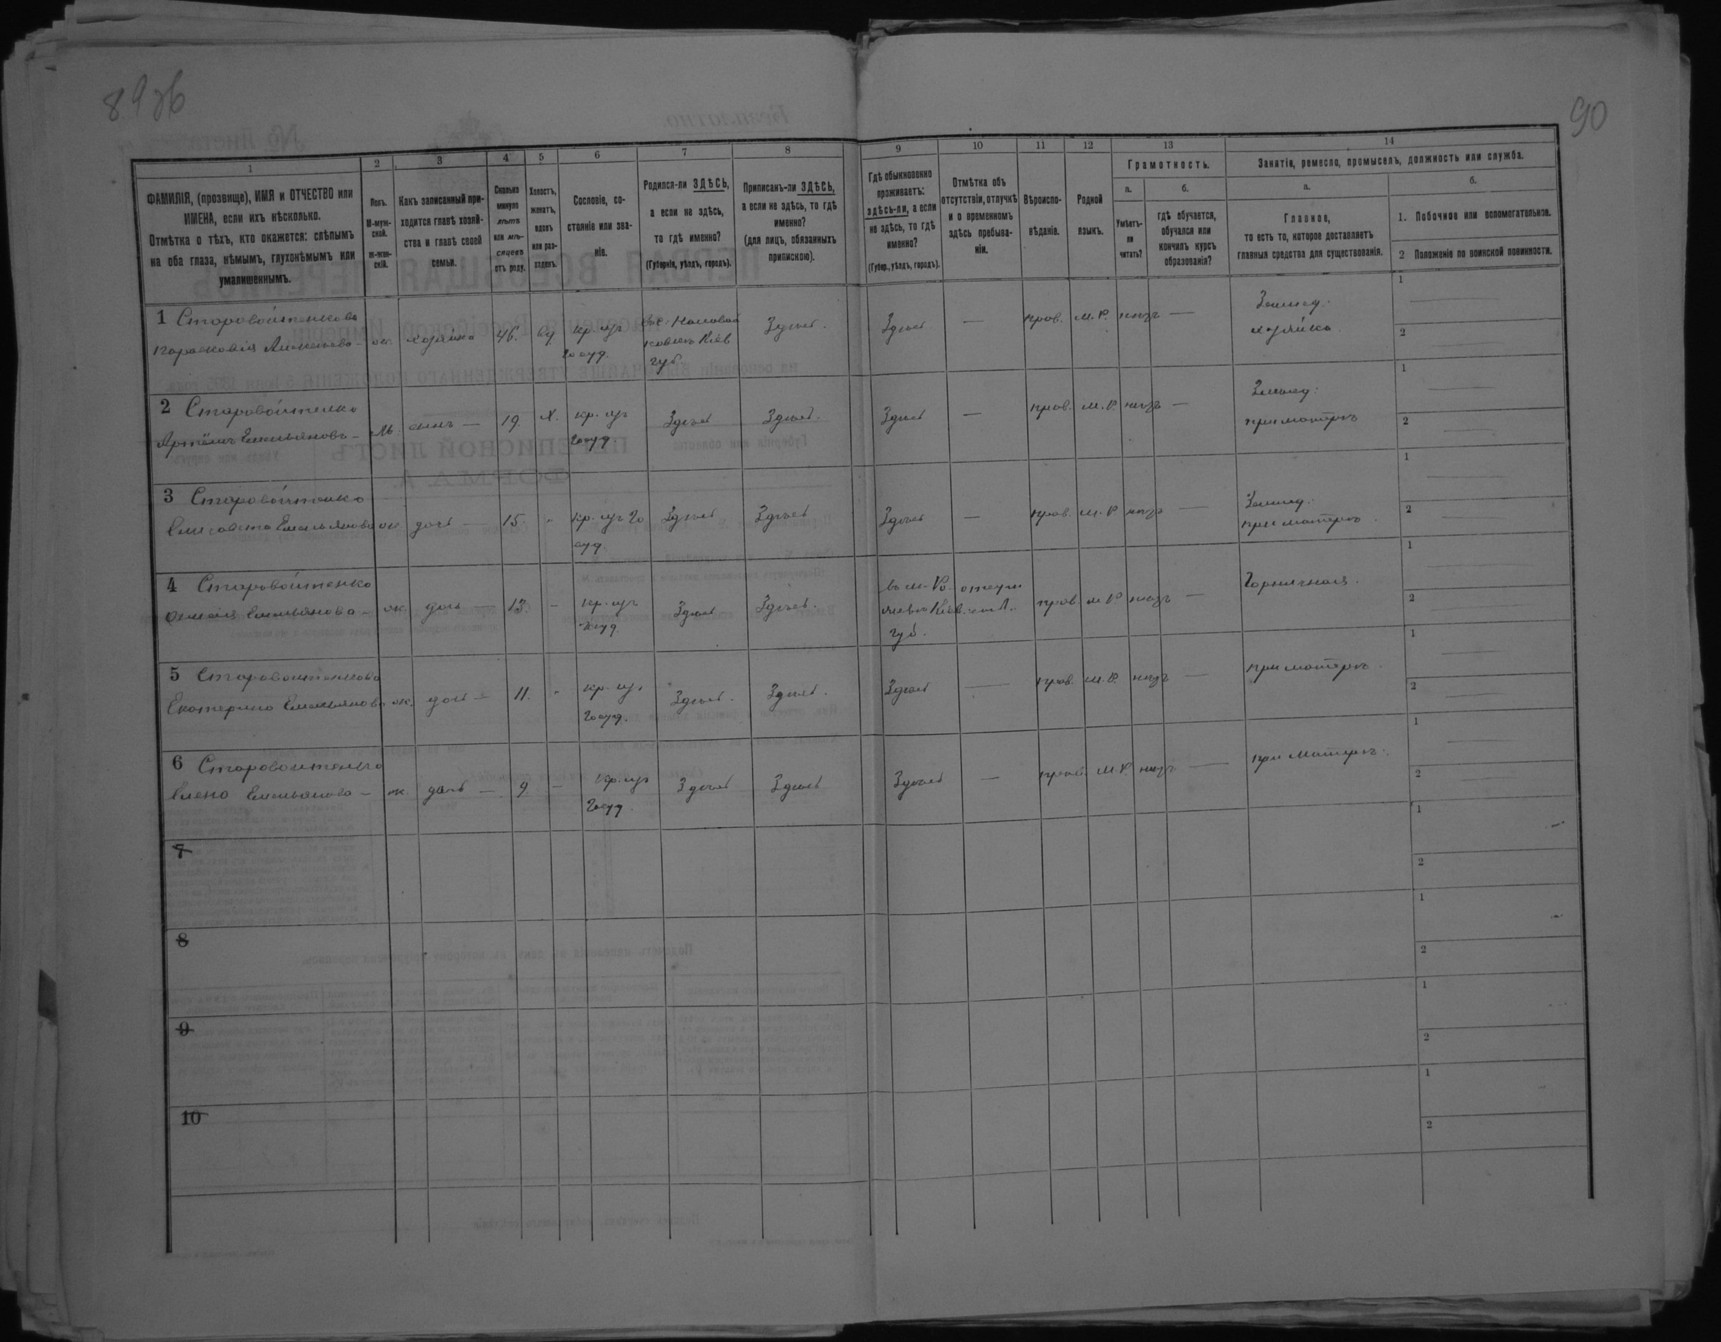 89об
90
1 2 3 4 5 6 7 8 9 10 11 12 13 14
ФАМИЛІЯ, (прозвище), ИМЯ и ОТЧЕСТВО или
ИМЕНА, если ихъ нѣсколько.
Отмѣтка о тѣхъ, кто окажется: слѣпымъ
на оба глаза, нѣмымъ, глухонѣмымъ или
умалишеннымъ.
Полъ.
М-муж-
ской.
ж-жен-
скій.
Какъ записанный при-
ходится главѣ хозяй-
ства и главѣ своей
семьи.
Сколько
минуло
лѣтъ
или мѣ-
сяцевъ
отъ роду.
Холостъ,
женатъ,
вдовъ
или раз-
веденъ.
Сословіе, со-
стояніе или зва-
ніе.
Родился-ли ЗДѢСЬ,
а если не здѣсь,
то гдѣ именно?
(Губернія, уѣздъ, городъ).
Приписанъ-ли ЗДѢСЬ,
а если не здѣсь, то гдѣ
именно?
(для лицъ, обязанныхъ
припискою).
Гдѣ обыкновенно
проживаетъ:
здѣсь-ли, а если
не здѣсь, то гдѣ
именно?
(Губер., уѣздъ, городъ).
Отмѣтка объ
отсутствіи, отлучкѣ
и о временномъ
здѣсь пребыва-
ніи.
Вѣроиспо-
вѣданіе.
Родной
языкъ.
Грамотность.
а.
Умѣетъ-
ли
читать?
б.
гдѣ обучается,
обучался или
кончилъ курсъ
образованія?
Занятіе, ремесло, промыселъ, должность или служба.
а.
Главное,
то есть то, которое доставляетъ
главныя средства для существованія.
б.
1. Побочное или вспомогательное.
2 Положеніе по воинской повинности.
1 Старовойтенкова
ж. хозяйка 46. кр. изъ Здѣсь. Здѣсь — прав. м.р. —
Госуд.
губ
Землед.
хозяйка
1
2
2 Старовойтенко
Артёмъ Емельяновъ — м. сынъ — 19. х. кр. изъ Здѣсь Здѣсь. Здѣсь — прав. м.р. —
Госуд
Землед.
при матери
1
2
3 Старовойтенко
Елисавета Емельянова ж дочь — 15 - кр. изъ Го Здѣсь Здѣсь Здѣсь — прав. м.р. —
суд
Землед.
при матери
1
2
4 Старовойтенко
Емельянова — ж. дочь — 13. - кр. изъ Здѣсь Здѣсь. прав. м.р. — Горничная.
Госуд
губ.
1
2
5 Старовойтенкова
Екатерина Емельянова ж. дочь — 11. - кр. изъ Здѣсь. Здѣсь. Здѣсь — прав. м.р. — при матери.
Госуд.
1
2
6 Старовойтенко
Елена Емельянова — ж. дочь — 9 — кр. изъ Здѣсь Здѣсь Здѣсь — прав. м.р. — при матери.
Госуд.
1
2
7
1
2
8
1
2
9
1
2
10
1
2